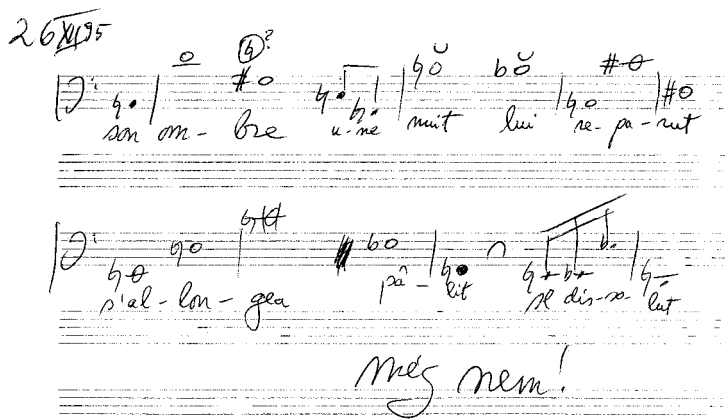 26 XII 95
son om- bre u-ne nuit lui re-pa-rut
s'al-lon-gea pâ-lit se dis-so-lut
még nem!